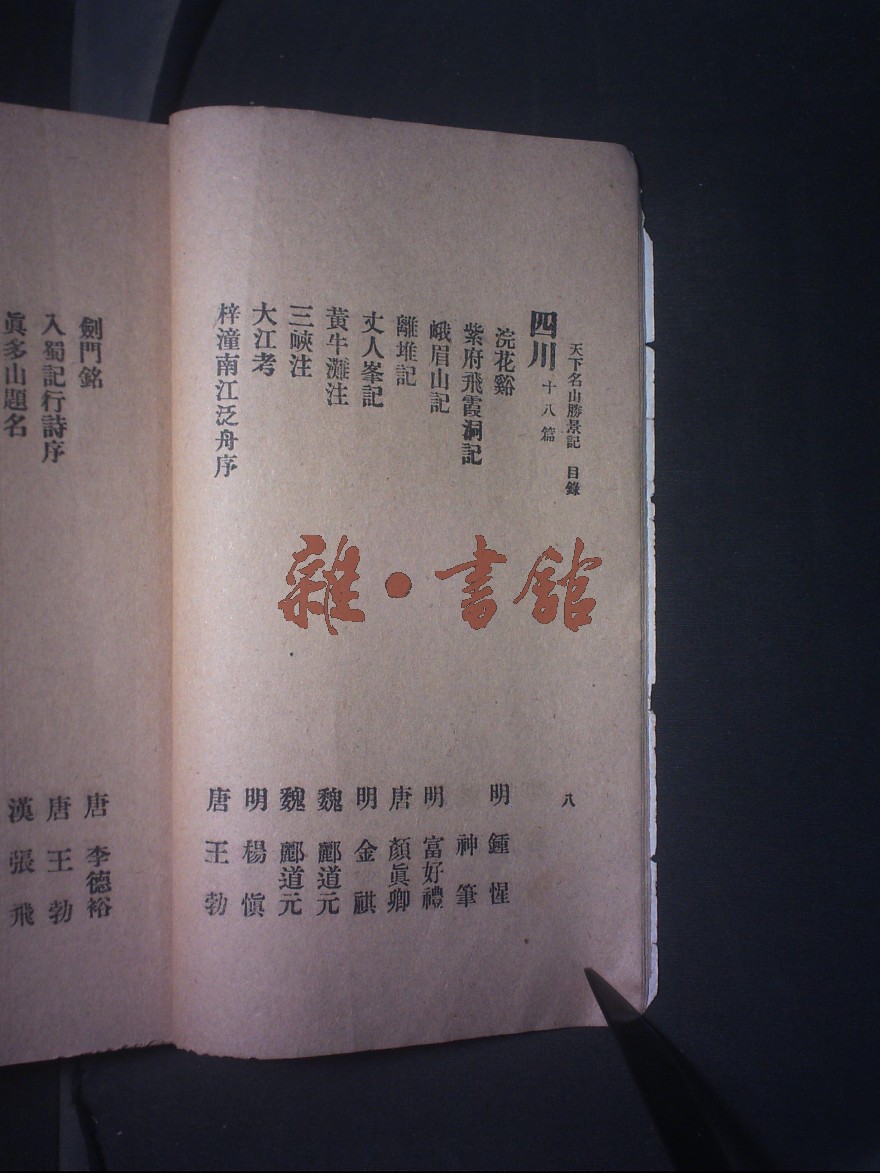 天下名山勝景記 目錄 八
四川 十八篇
浣花谿 明 鍾惺
紫府飛霞洞記 神筆
峨眉山記 明 富好禮
離堆記 唐 顏眞卿
丈人峯記 明 金祺
黃牛灘注 魏 酈道元
三峽注 魏 酈道元
大江考 明 楊愼
梓潼南江泛舟序 唐 王勃
劍門銘 唐 李德裕
入蜀記行詩序 唐 王勃
眞多山題名 漢 張飛
雜·書館